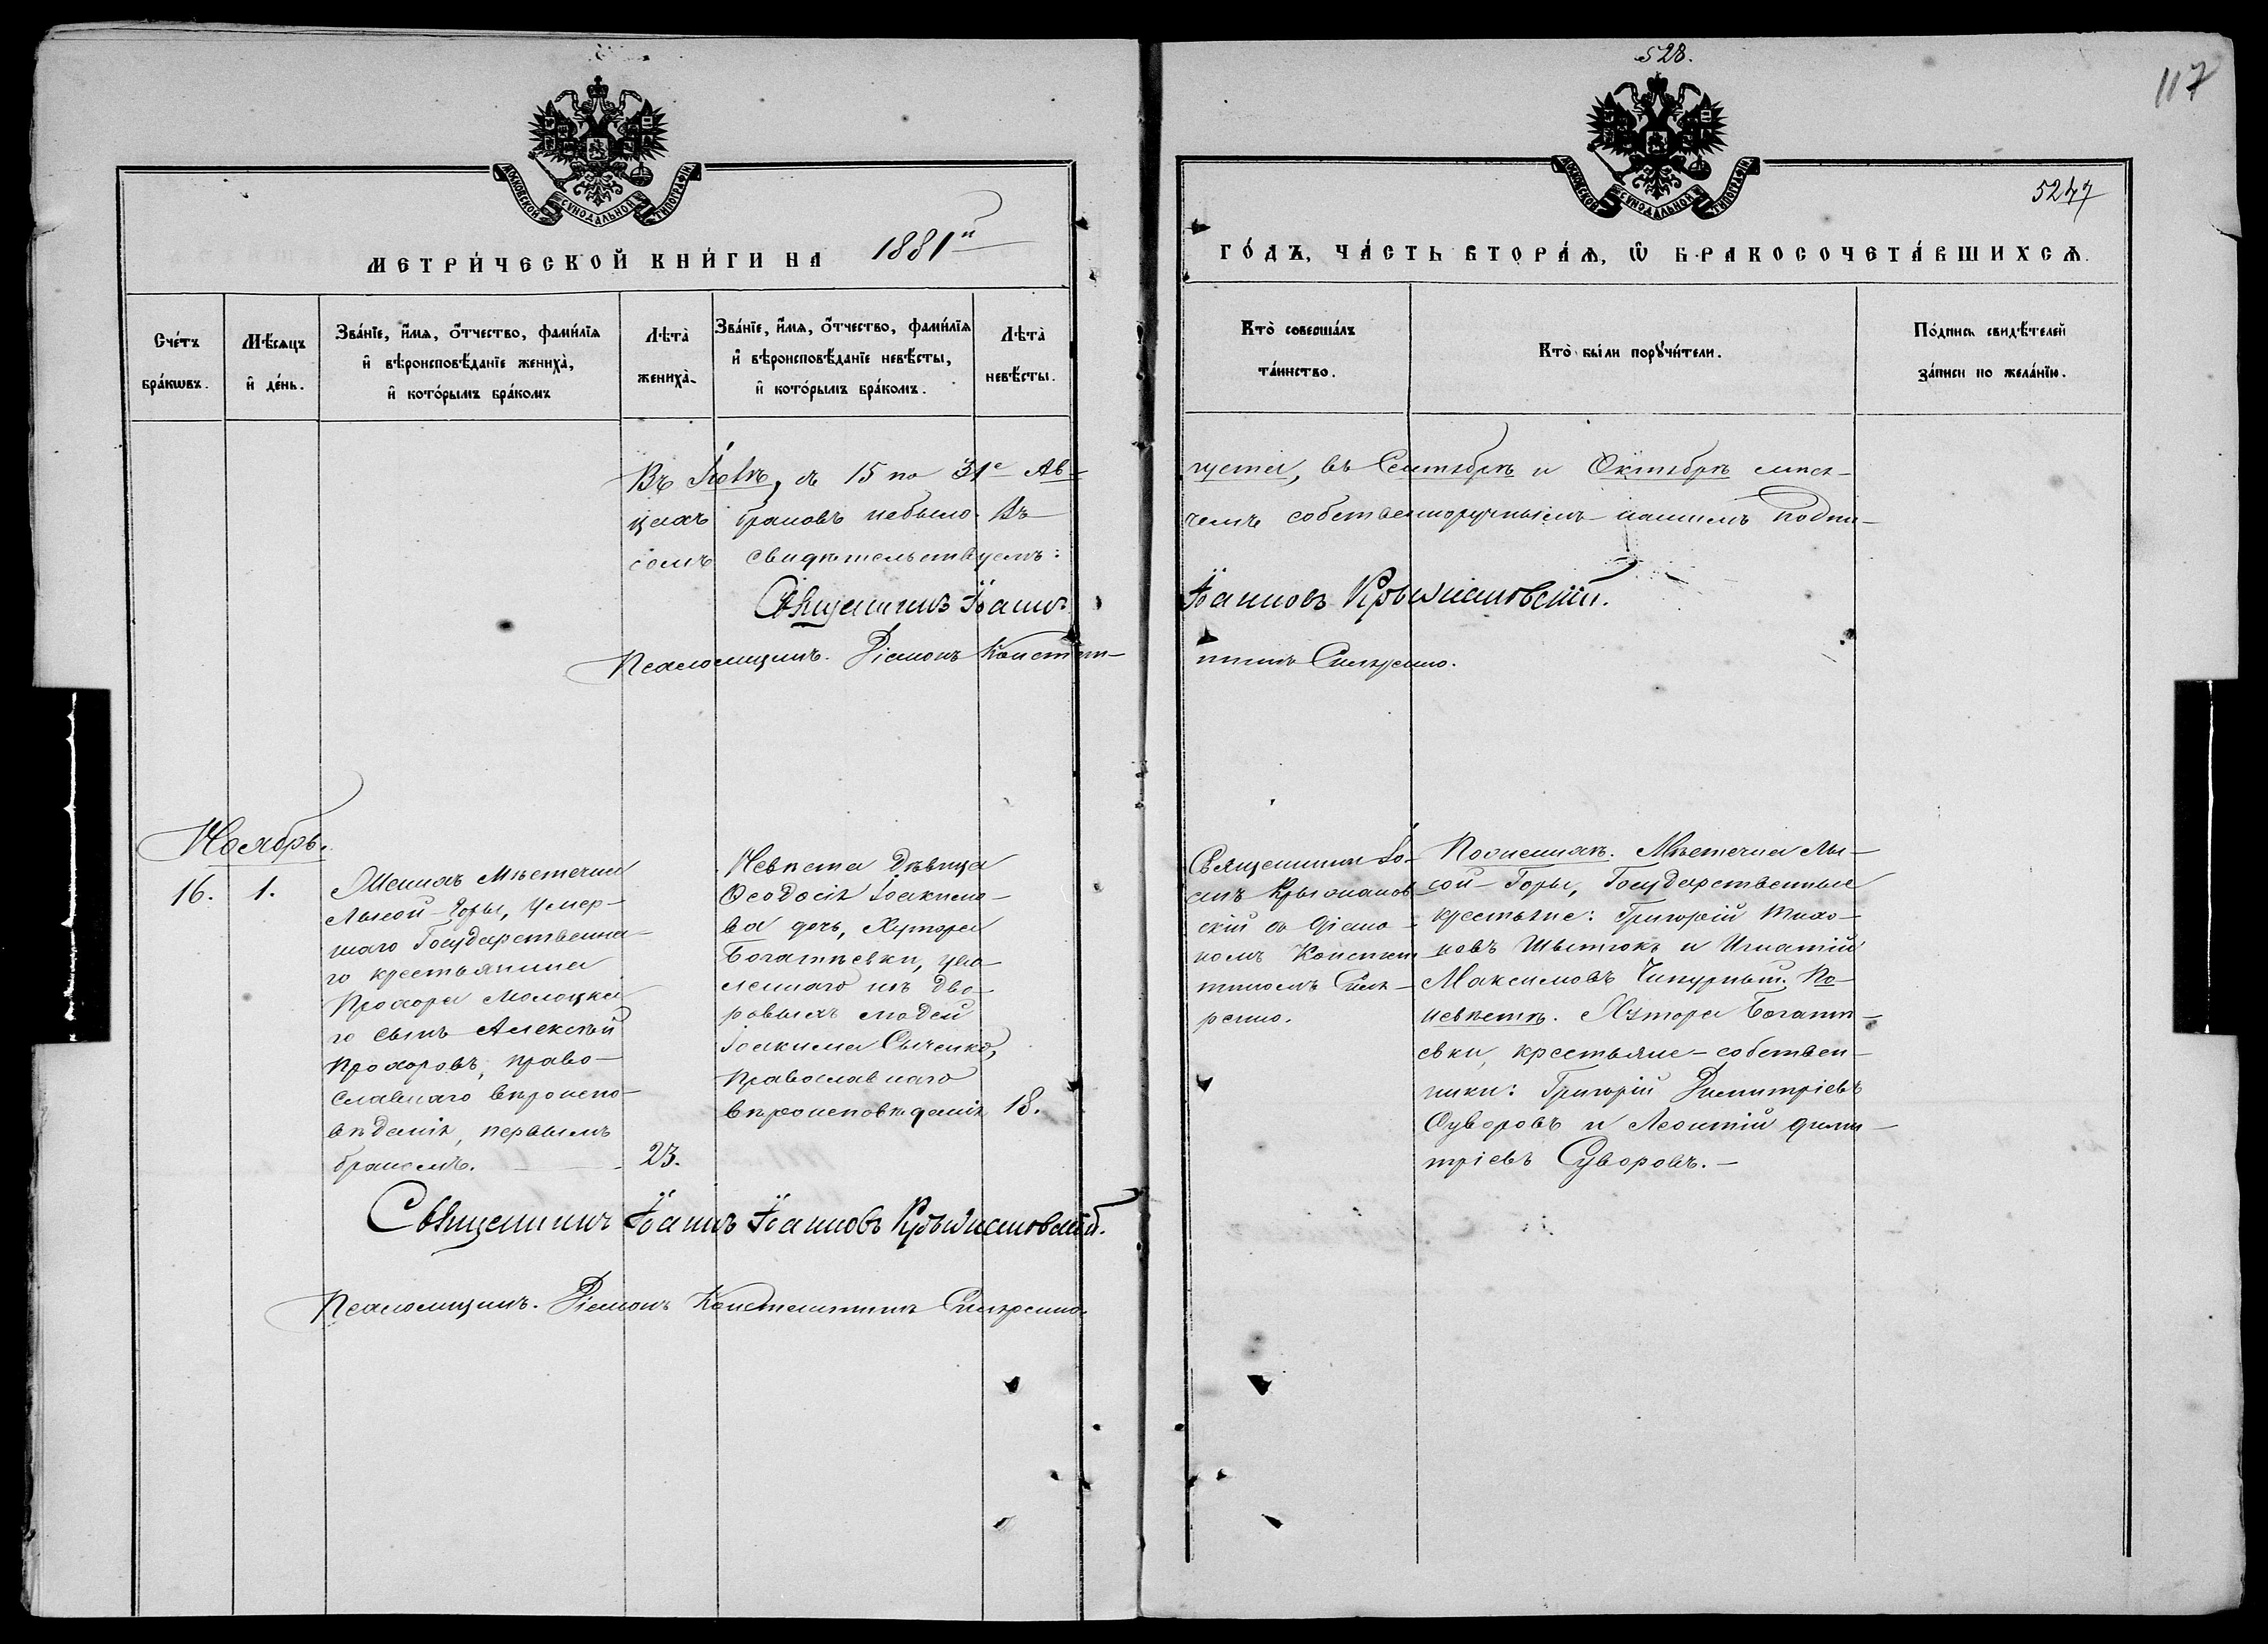 528.
117
5247
МОСКОВСКОЙ СѴНОДАЛЬНОЙ ТИПОГРАФІИ
МОСКОВСКОЙ СѴНОДАЛЬНОЙ ТИПОГРАФІИ
МЕТРИ́ЧЕСКОЙ КНИ́ГИ НА 1881й
ГО́ДЪ, ЧА́СТЬ ВТОРА́Ѧ, Ѿ БРАКОСОЧЕТА́ВШИХСѦ.
Сче́тъ бра́кѡвъ.
Мѣ́сяцъ и҆ де́нь.
Зва́нїе, и҆́мѧ, о҆́тчество, фами́лїѧ
и҆ вѣроисповѣ́данїе жениха̀,
и҆ кото́рымъ бра́комъ
Лѣта̀ жениха̀.
Зва́нїе, и҆́мѧ, о҆́тчество, фами́лїѧ
и҆ вѣроисповѣ́данїе невѣ́сты,
и҆ кото́рымъ бра́комъ.
Лѣта̀ невѣ́сты.
Кто̀ соверша́лъ та́инство.
Кто̀ бы́ли порꙋчи́тели.
По́дпись свидѣ́телей
за́писи по жела́нїю.
Въ Іюлѣ, съ 15 по 31е Ав-
густа, въ Сентябрѣ и Октябрѣ мѣся-
цахъ браковъ небыло. Въ
чемъ собственноручнымъ нашимъ подпи-
сомъ свидѣтельствуемъ:
Священникъ Іоаннъ
Іоанновъ Крыжановскій.
Псаломщикъ. Діаконъ Констан-
тинъ
Ноябрь.
16.
1.
Женихъ Мѣстечка
Лысой-Горы, умер-
шаго Государственна-
го крестьянина
Прохора Молоцка-
го сынъ Алексѣй
Прохоровъ, право-
славнаго вѣроиспо-
вѣданія, первымъ
бракомъ.
23.
Невѣста Дѣвица
Ѳеодосія Іоакимо-
ва дочь, Хутора
Богатаевки, уво-
леннаго изъ дво-
ровыхъ людей
Іоакима Сыченко,
Православнаго
вѣроисповѣданія
18.
Священникъ Іо-
анъ Крыжанов-
скій съ Діако-
номъ Констан
тиномъ
Поженихѣ. Мѣстечка Лы-
сой-Горы, Государственные
крестьяне: Григорій Тихо-
новъ и Игнатій
Максимовъ Чипурный. По-
невѣстѣ. Хутора Богата-
евки, крестьяне-собствен-
ники: Григорій Димитріевъ
Суворовъ и Леонтій Дими-
тріевъ Суворовъ.-
Священникъ Іоаннъ Іоанновъ Крыжановскій.
Псаломщикъ. Діаконъ Константинъ